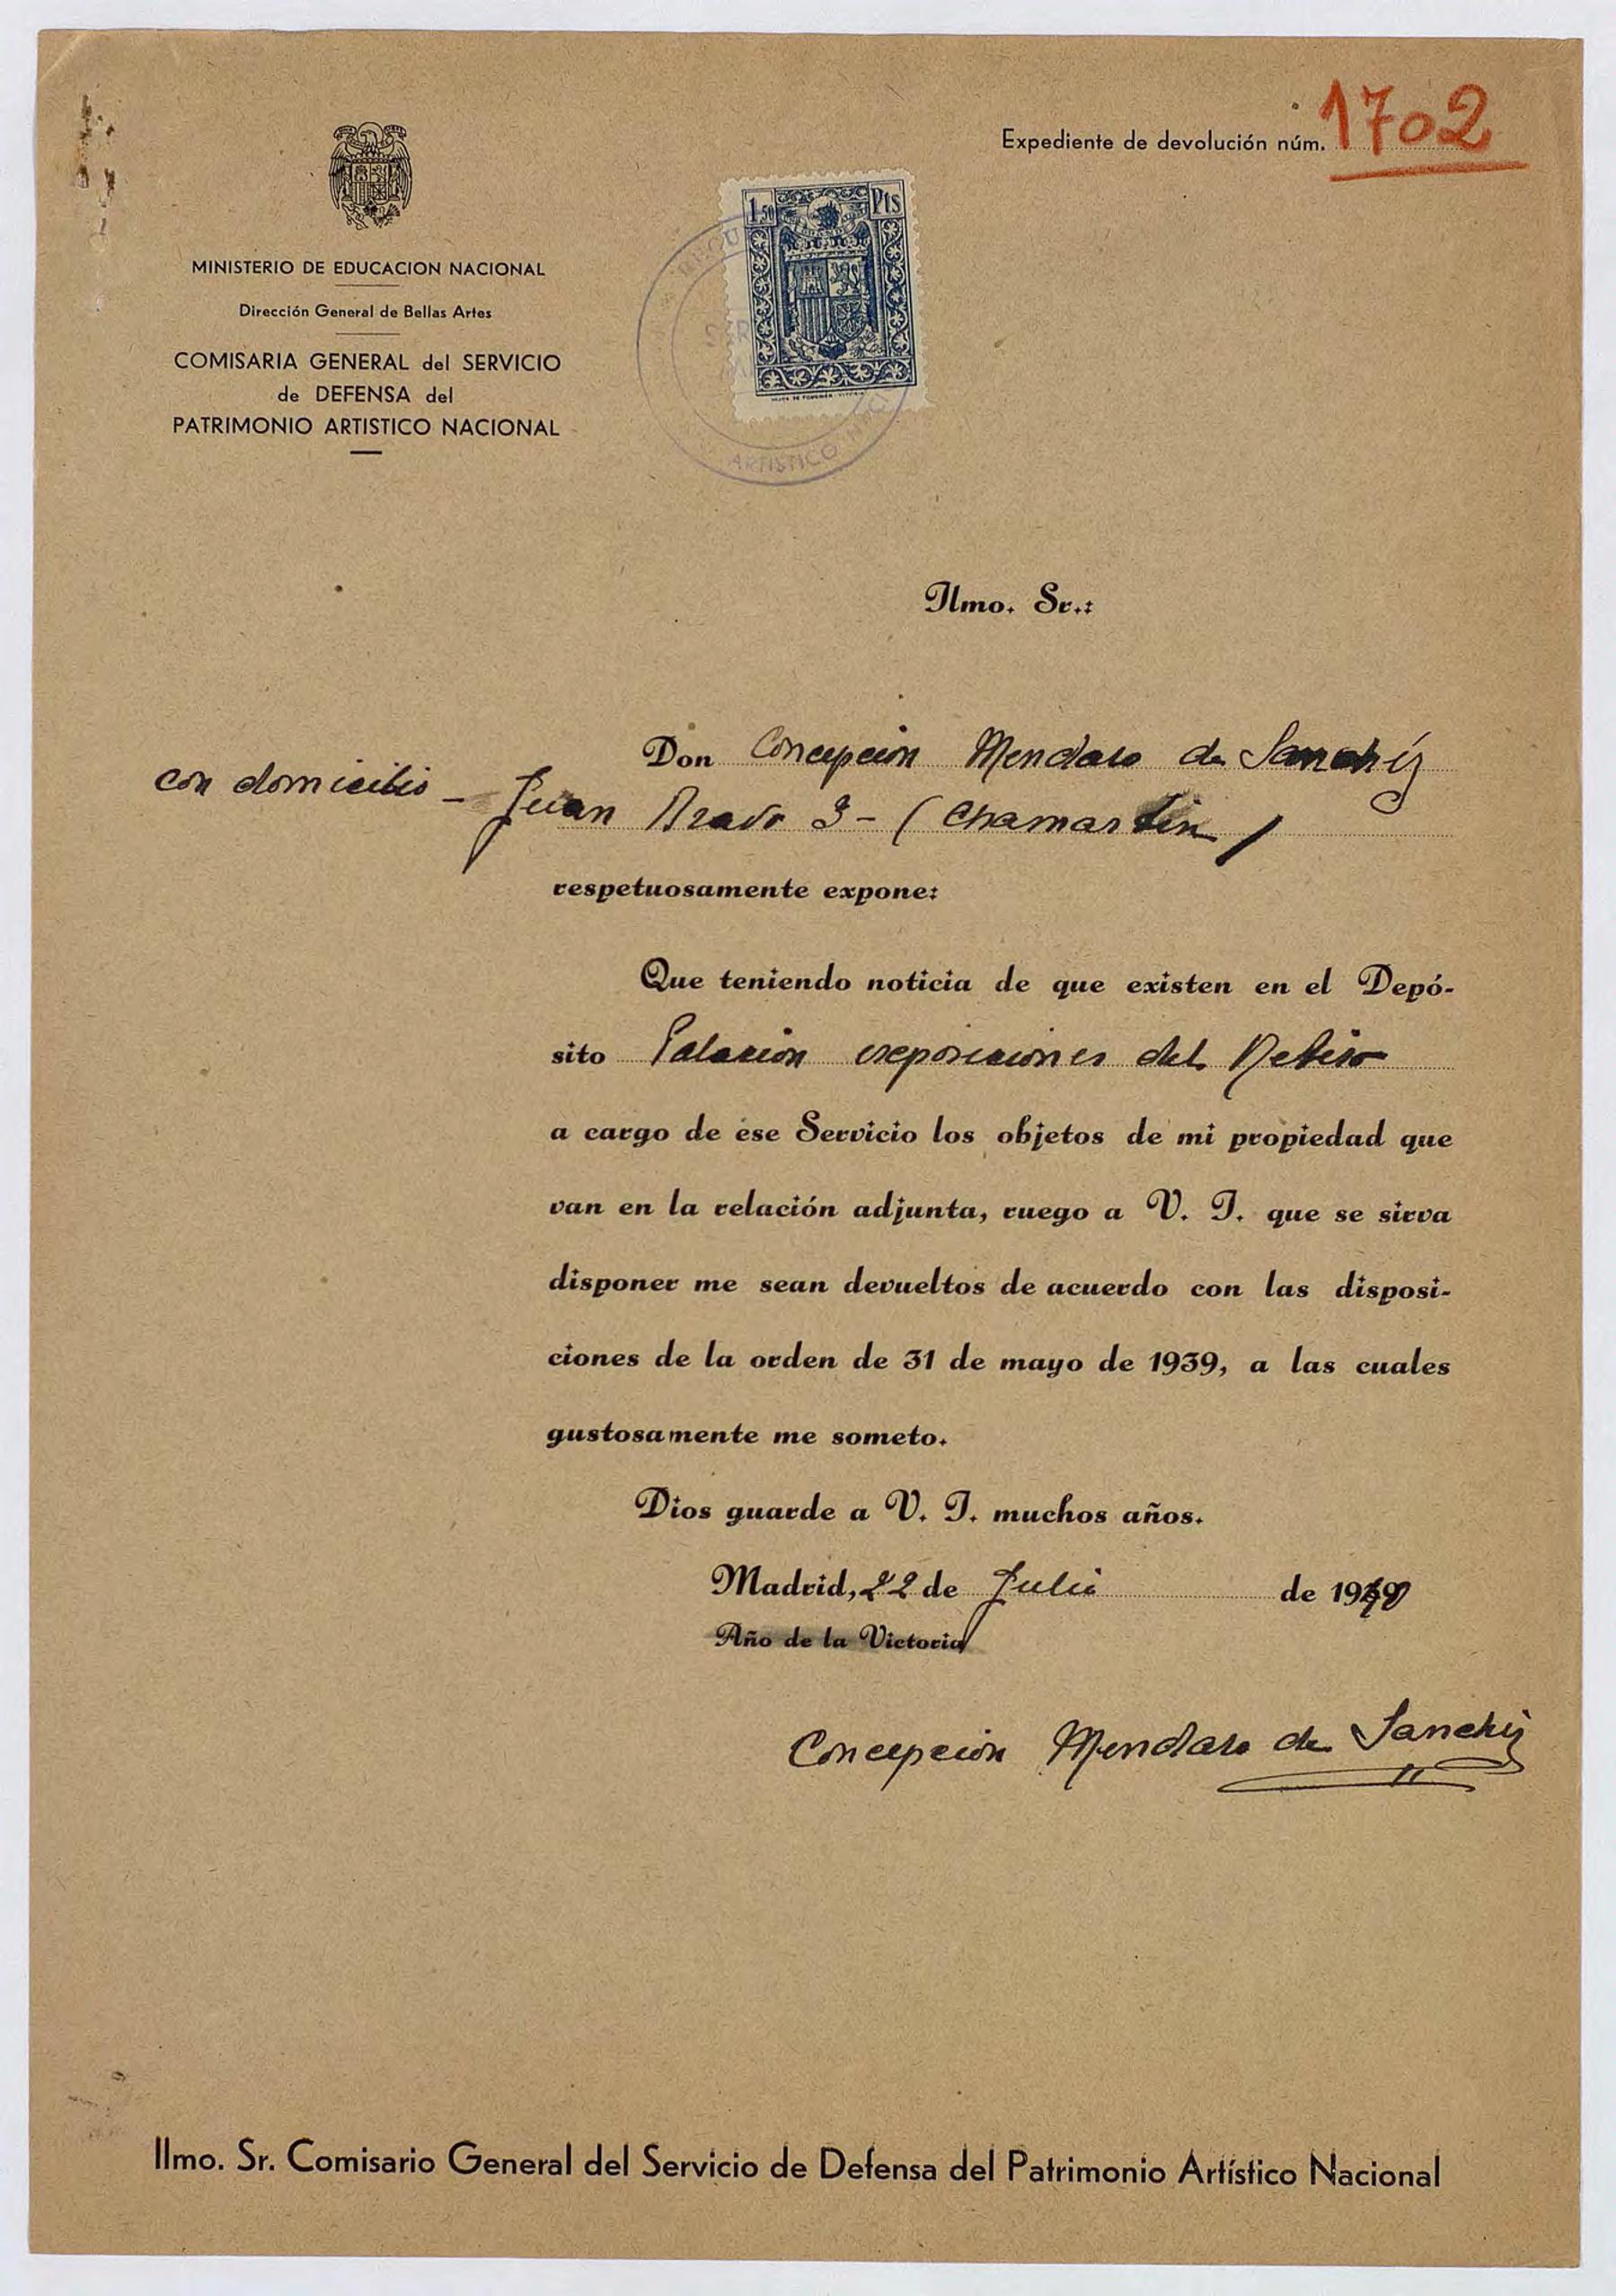 Expediente de devolución núm. 1702
1,50 Pts
ARTISTICO
MINISTERIO DE EDUCACION NACIONAL
Dirección General de Bellas Artes
COMISARIA GENERAL del SERVICIO
de DEFENSA del
PATRIMONIO ARTISTICO NACIONAL
Ilmo. Sr.:
Don Concepción Mendaro de Sanchiz
con domicilio - Juan Bravo 3 - (Chamartin)
respetuosamente expone:
Que teniendo noticia de que existen en el Depó-
sito Palacion exposiciones del Retiro
a cargo de ese Servicio los objetos de mi propiedad que
van en la relación adjunta, ruego a V. I. que se sirva
disponer me sean devueltos de acuerdo con las disposi-
ciones de la orden de 31 de mayo de 1939, a las cuales
gustosamente me someto.
Dios guarde a V. I. muchos años.
Madrid, 22 de Julio de 1940
Año de la Victoria
Concepción Mendaro de Sanchiz
Ilmo. Sr. Comisario General del Servicio de Defensa del Patrimonio Artístico Nacional